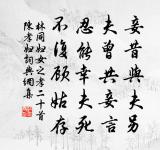 妾昔與夫別
夫曾共妾言
忍能幸夫死
不復顧姑存
林同婦女之孝二十首
陳孝婦詞典網集